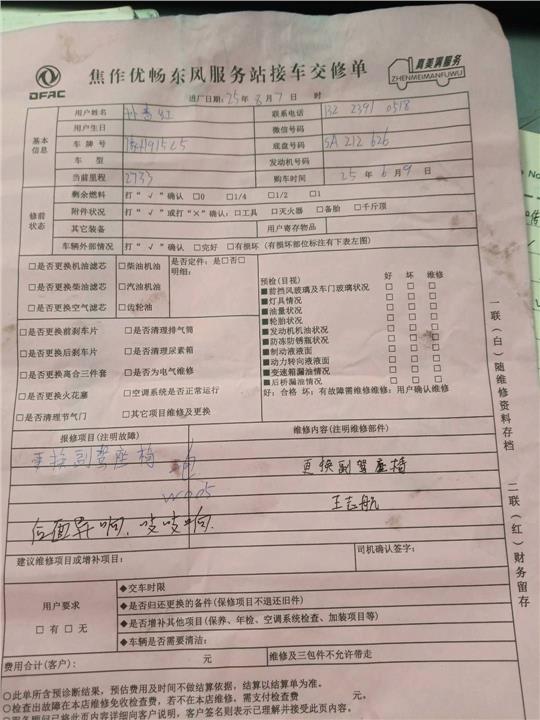 DFAC
焦作优畅东风服务站接车交修单
真美满服务
ZHENMEIMANFUWU
进厂日期：25年8月7日 时
基本信息
用户姓名
联系电话 132 2391 0518
用户生日
微信号码
车牌号
底盘号码 SA212626
车型
发动机号码
当前里程 2733
购车时间 25年6月9日
修前状态
剩余燃料 打“√”确认 □0 □1/4 □1/2 □1
附件状况 打“√”或打“×”确认：□工具 □灭火器 □备胎 □千斤顶
其它装备
用户寄存物品
车辆外部情况 打“√”确认 □完好 □有损坏（有损坏部位标注有下表左图）
□是否更换机油滤芯 □柴油机油 是否定件：是□否□
明细：
□是否更换柴油滤芯 □汽油机油
□是否更换空气滤芯 □齿轮油
□是否更换前刹车片 □是否清理排气筒
□是否更换后刹车片 □是否清理尿素箱
□是否更换离合三件套 □是否为电气维修
□是否更换火花塞 □空调系统是否正常运行
□是否清理节气门 □其它项目维修及更换
预检(目视) 好 坏 维修
■前挡风玻璃及车门玻璃状况 □ □ □
■灯具情况 □ □ □
■油量状况 □ □ □
■轮胎状况 □ □ □
■发动机机油状况 □ □ □
■防冻防锈瓶状况 □ □ □
■制动液液面 □ □ □
■动力转向液液面 □ □ □
■变速箱漏油情况 □ □ □
■后桥漏油情况 □ □ □
好：合格 坏：有故障需维修维修：用户确认维修
报修项目(注明故障)
维修内容(注明维修部件)
更换副驾座椅
更换副驾座椅
王志航
后面异响，吱吱响.
建议维修项目或增补项目：
司机确认签字：
用户要求
□有□无
◆交车时限
◆是否归还更换的备件(保修项目不退还旧件)
◆是否增补其他项目(保养、年检、空调系统检查、加装项目等)
◆车辆是否需要清洁：
费用合计(客户)： 元
维修及三包件不允许带走
○此单所含预诊断结果，预估费用及时间不做结算依据，结算以结算单为准。
○检查出故障在本店维修免收检查费，若不在本店维修，需支付检查费 元。
一联(白)随维修资料存档
二联(红)财务留存